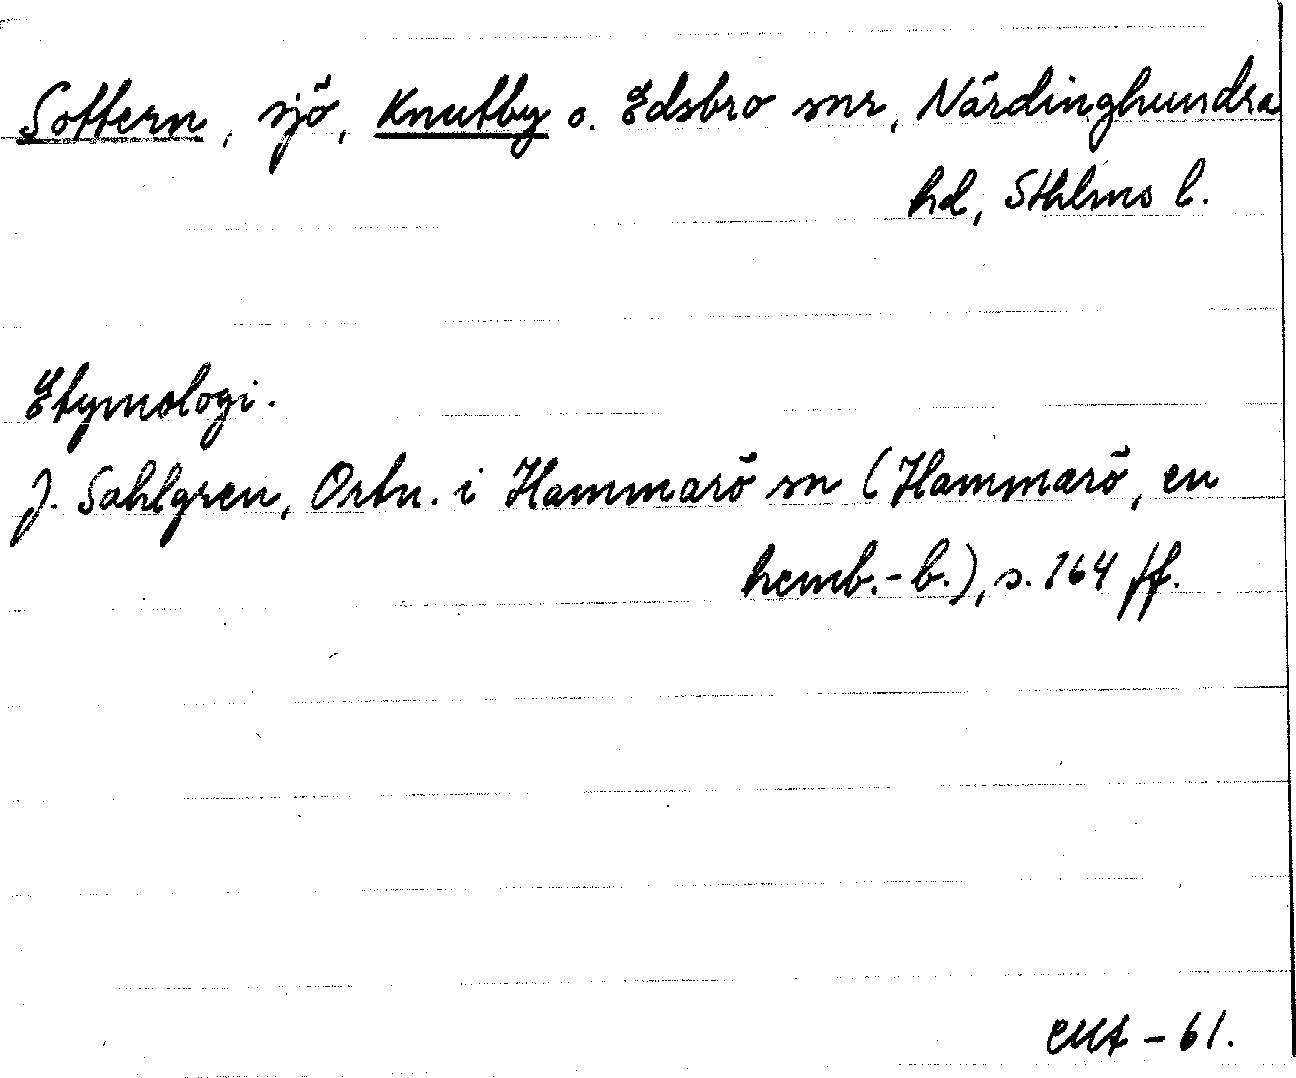 Sottern, sjö, Knutby o. Edsbro snr, Närdinghundra
hd, Sthlms l.
Etymologi.
J. Sahlgren, Ortn. i Hammarö sn (Hammarö, en
hemb.-b.), s. 164 ff.
- 61.